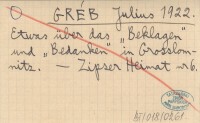 O GRÉB Julius 1922.
Etwas über das „Beklagen"
und „Bedanken" in Grosslom-
nitz. — Zipser Heimat nr 6.